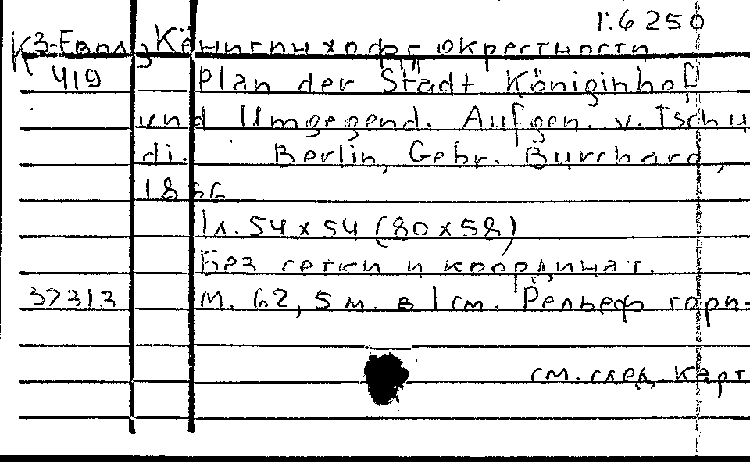 1:6 250
К3-Евг Кёнигинхоф окрестности
419 Plan der Stadt Königinhof
und Umgegend. Aufgen. v. Tschu
di. Berlin, Gebr. Burchard,
1866
1 л. 54 x 54 (80 x 58)
Без сетки и координат.
37313 м. 62,5 м. в 1 см. Рельеф гори-
см. след. карт